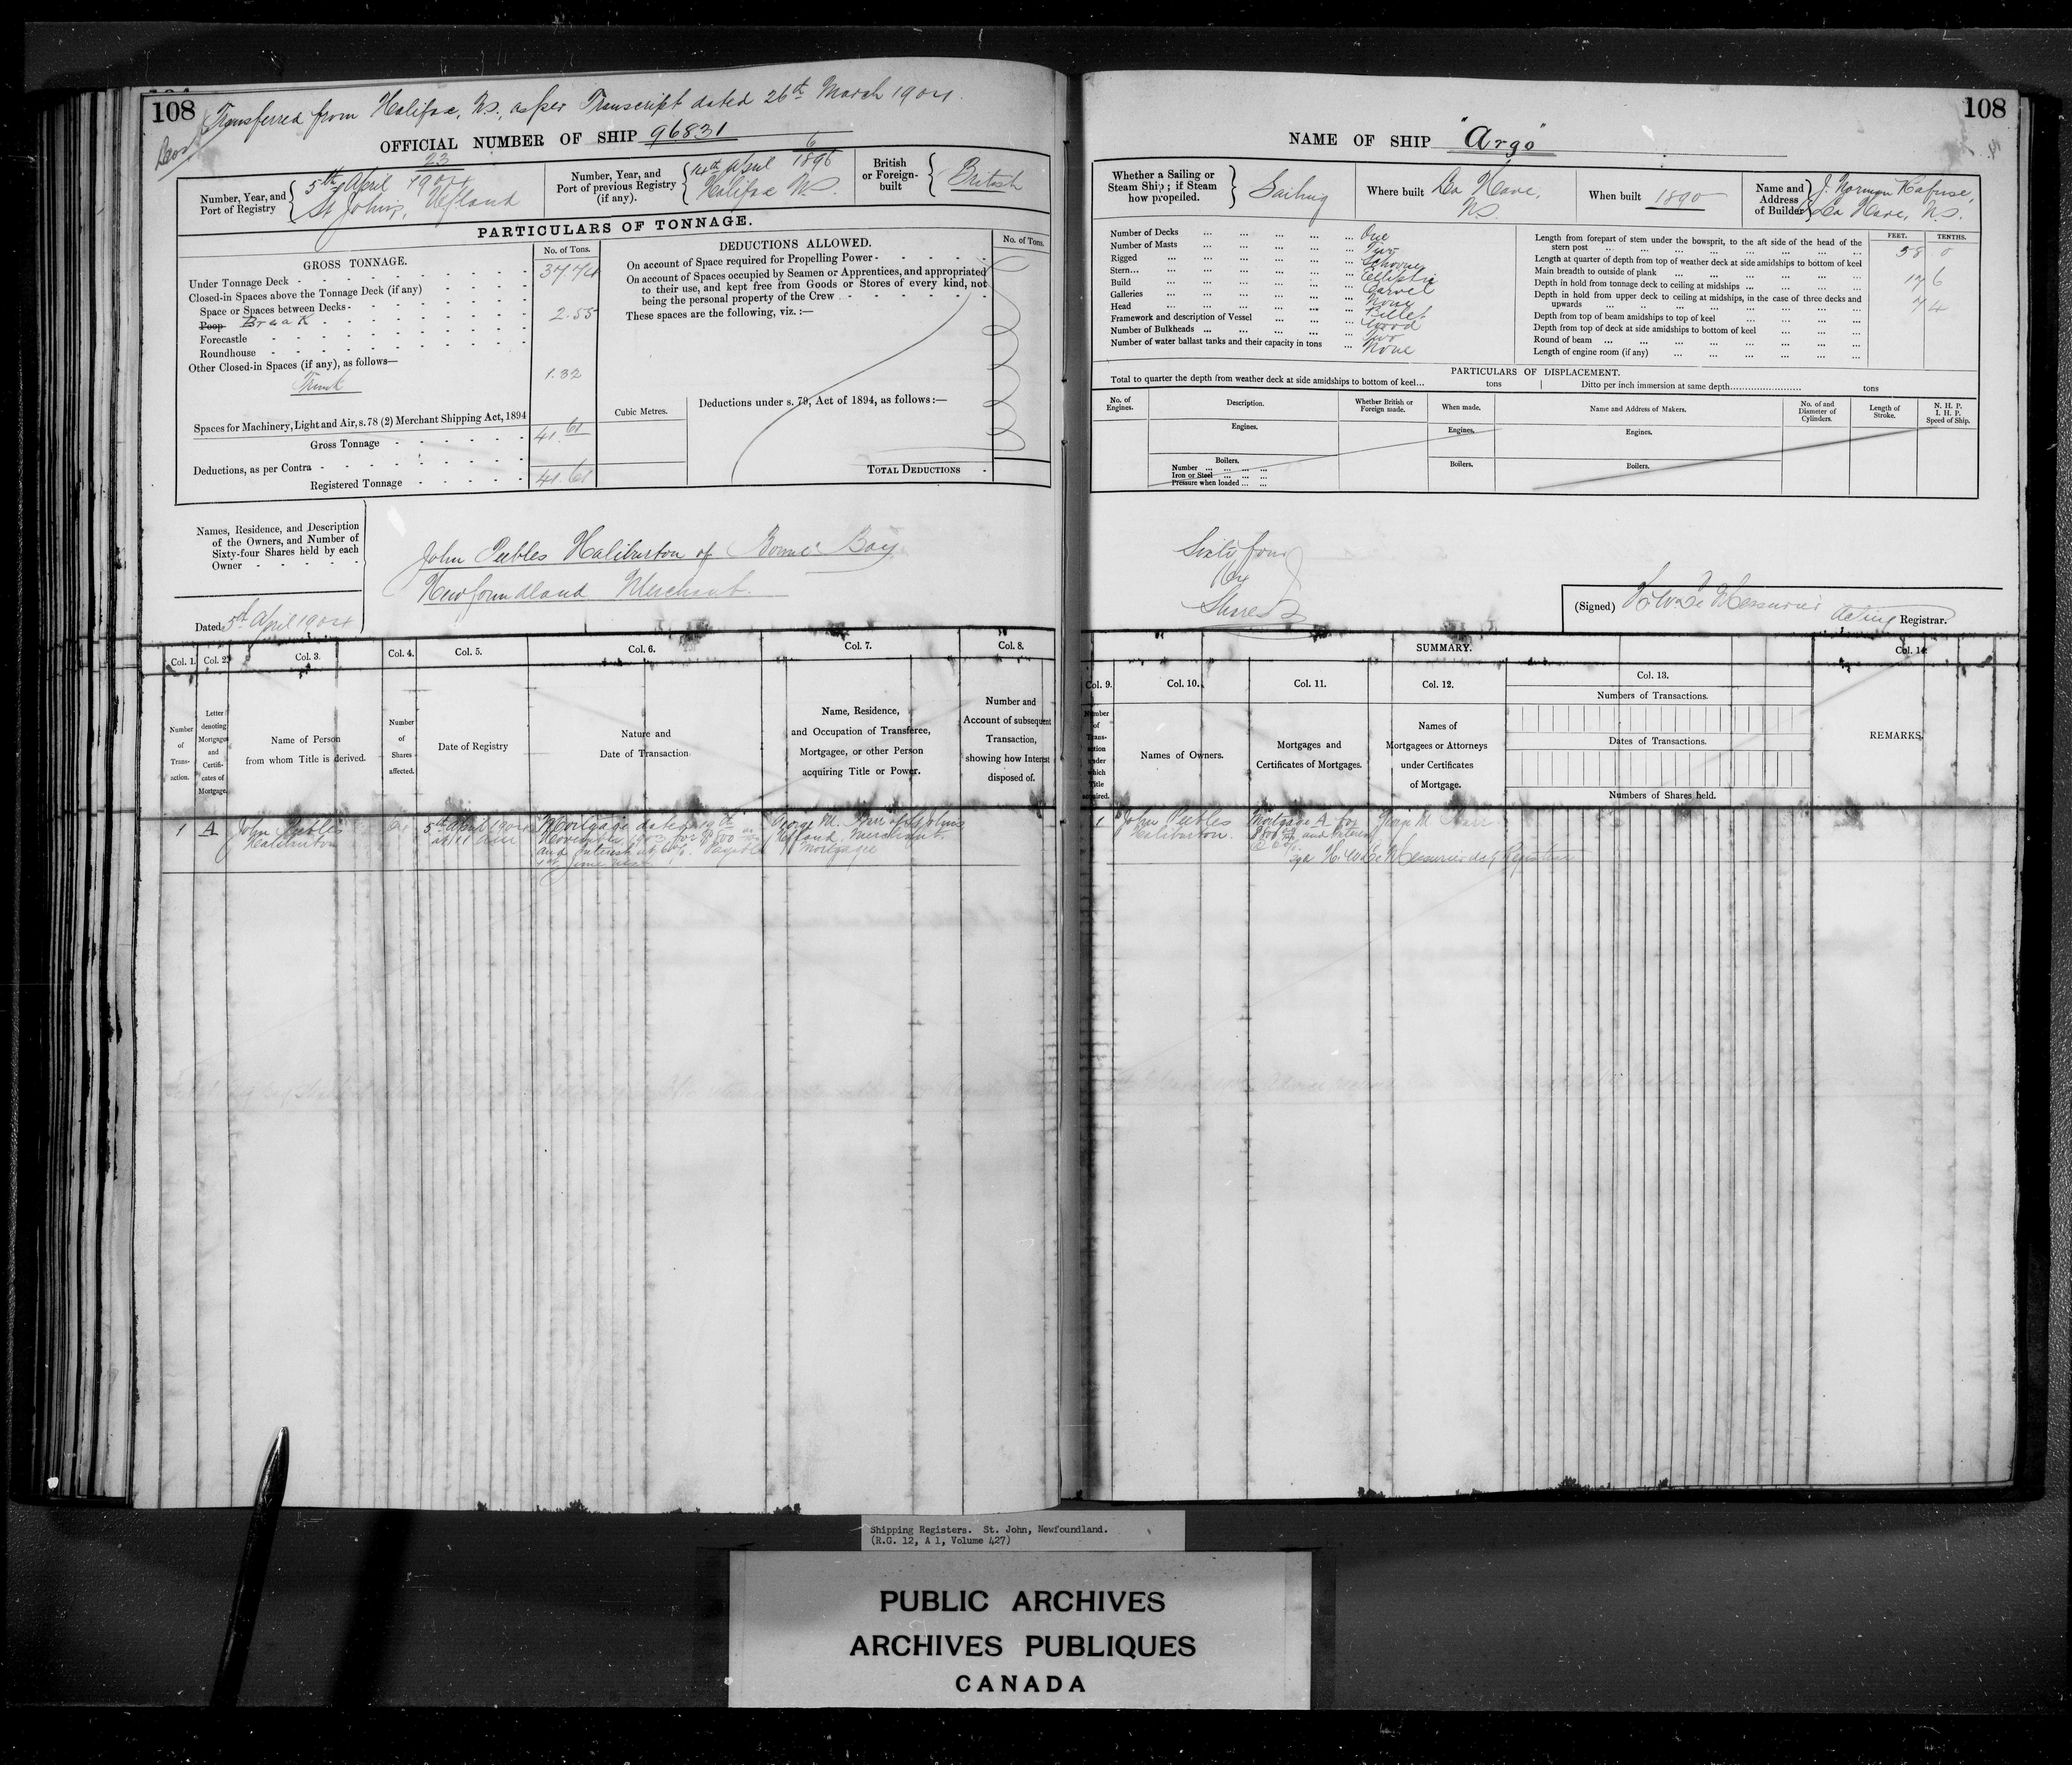 108
Transferred from Halifax, N.S., as per Transcript dated 26th March 1904.
OFFICIAL NUMBER OF SHIP 96831
Number, Year, and
Port of Registry
23
5th April 1904
St John's, Nfland
Number, Year, and
Port of previous Registry
(if any).
6
14th April 1896
Halifax N.S.
British
or Foreign-
built
British
PARTICULARS OF TONNAGE.
GROSS TONNAGE.
No. of Tons.
Under Tonnage Deck - 37.74
Closed-in Spaces above the Tonnage Deck (if any)
Space or Spaces between Decks -
Poop Break 2.55
Forecastle
Roundhouse
Other Closed-in Spaces (if any), as follows—
Trunk 1.32
Spaces for Machinery, Light and Air, s. 78 (2) Merchant Shipping Act, 1894
Gross Tonnage 41.61
Deductions, as per Contra
Registered Tonnage 41.61
DEDUCTIONS ALLOWED.
No. of Tons.
On account of Space required for Propelling Power -
On account of Spaces occupied by Seamen or Apprentices, and appropriated
to their use, and kept free from Goods or Stores of every kind, not
being the personal property of the Crew
These spaces are the following, viz. :—
Cubic Metres.
Deductions under s. 79, Act of 1894, as follows :—
TOTAL DEDUCTIONS
Names, Residence, and Description
of the Owners, and Number of
Sixty-four Shares held by each
Owner
John Peebles Haliburton of Bonne Bay
Newfoundland Merchant.
Dated 5th April 1904
Col. 1. Col. 2. Col. 3. Col. 4. Col. 5. Col. 6. Col. 7. Col. 8.
Number
of
Trans-
action.
Letter
denoting
Mortgages
and
Certifi-
cates of
Mortgage.
Name of Person
from whom Title is derived.
Number
of
Shares
affected.
Date of Registry
Nature and
Date of Transaction
Name, Residence,
and Occupation of Transferee,
Mortgagee, or other Person
acquiring Title or Power.
Number and
Account of subsequent
Transaction,
showing how Interest
disposed of.
1 A John Peebles
Haliburton
64
5th April 1904
at 11
Mortgage dated 19th
November 1903 for $800
and interest at 6%. Payable
1st June next
George M. Barr of St Johns
Nfland, Merchant
Mortgagee
108
NAME OF SHIP "Argo"
Whether a Sailing or
Steam Ship ; if Steam
how propelled.
Sailing
Where built La Have,
N.S.
When built 1890
Name and
Address
of Builder
J. Norman Rafuse,
La Have, N.S.
Number of Decks One
Number of Masts Two
Rigged Schooner
Stern Elliptic
Build Carvel
Galleries None
Head Billet
Framework and description of Vessel Wood
Number of Bulkheads Two
Number of water ballast tanks and their capacity in tons None
FEET. TENTHS.
Length from forepart of stem under the bowsprit, to the aft side of the head of the
stern post 58 0
Length at quarter of depth from top of weather deck at side amidships to bottom of keel
Main breadth to outside of plank 17 6
Depth in hold from tonnage deck to ceiling at midships 7 4
Depth in hold from upper deck to ceiling at midships, in the case of three decks and
upwards
Depth from top of beam amidships to top of keel
Depth from top of deck at side amidships to bottom of keel
Round of beam
Length of engine room (if any)
PARTICULARS OF DISPLACEMENT.
Total to quarter the depth from weather deck at side amidships to bottom of keel... tons Ditto per inch immersion at same depth tons
No. of
Engines.
Description.
Whether British or
Foreign made.
When made.
Name and Address of Makers.
No. of and
Diameter of
Cylinders.
Length of
Stroke.
N. H. P.
I. H. P.
Speed of Ship.
Engines. Engines. Engines.
Boilers. Boilers. Boilers.
Number
Iron or Steel
Pressure when loaded
Sixty four
64
Shares
(Signed) H. W. Le Messurier
Acting Registrar.
SUMMARY.
Col. 9. Col. 10. Col. 11. Col. 12. Col. 13. Col. 14.
Number
of
Trans-
action
under
which
Title
acquired.
Names of Owners.
Mortgages and
Certificates of Mortgages.
Names of
Mortgagees or Attorneys
under Certificates
of Mortgage.
Numbers of Transactions.
Dates of Transactions.
Numbers of Shares held.
REMARKS.
1 John Peebles
Haliburton.
Mortgage A for
$800 and interest
@ 6%
George M. Barr
H. W. Le Messurier actg Registrar
Shipping Registers. St. John, Newfoundland.
(R.G. 12, A 1, Volume 427)
PUBLIC ARCHIVES
ARCHIVES PUBLIQUES
CANADA